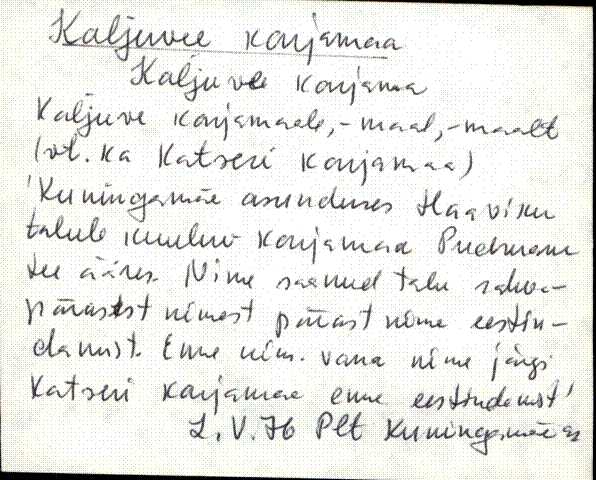 Kaljuvee karjamaa
Kaljuvee karjama
Kaljuve karjamaale, -maal, -maalt
(vt. ka Katseri karjamaa)
'Kuningamäe asunduses Haaviku
talule kuuluv karjamaa Pudmanu
tee ääres. Nime saanud talu rahva-
pärasest nimest pärast nime eestin-
damist. Enne nim. vana nime järgi
Katseri karjamaa enne eestindamist'
L.V.76 Plt Kuningamäe as